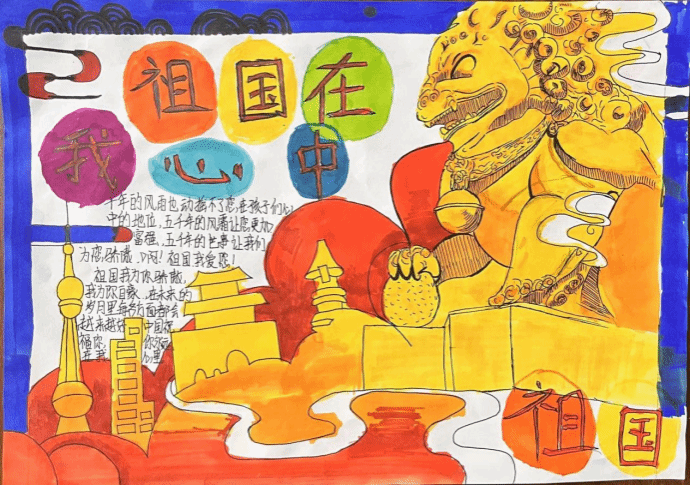 祖国在
我心中
千年的风雨也动摇不了您在孩子们心
中的地位，五千年的风霜让您更加
富强，五千年的 让我们
为您骄傲，啊！祖国我爱您！
祖国我为你骄傲，
我为你自豪，在未来的
岁月里每 方面都会
越来越好 中国
福你， 你
在我 心里
祖国